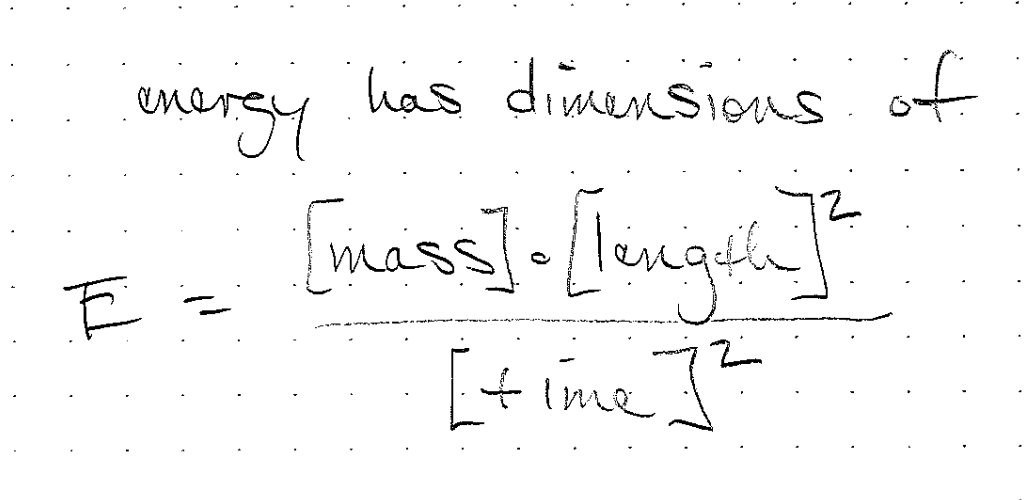 energy has dimensions of
E = [mass]·[length]² / [time]²